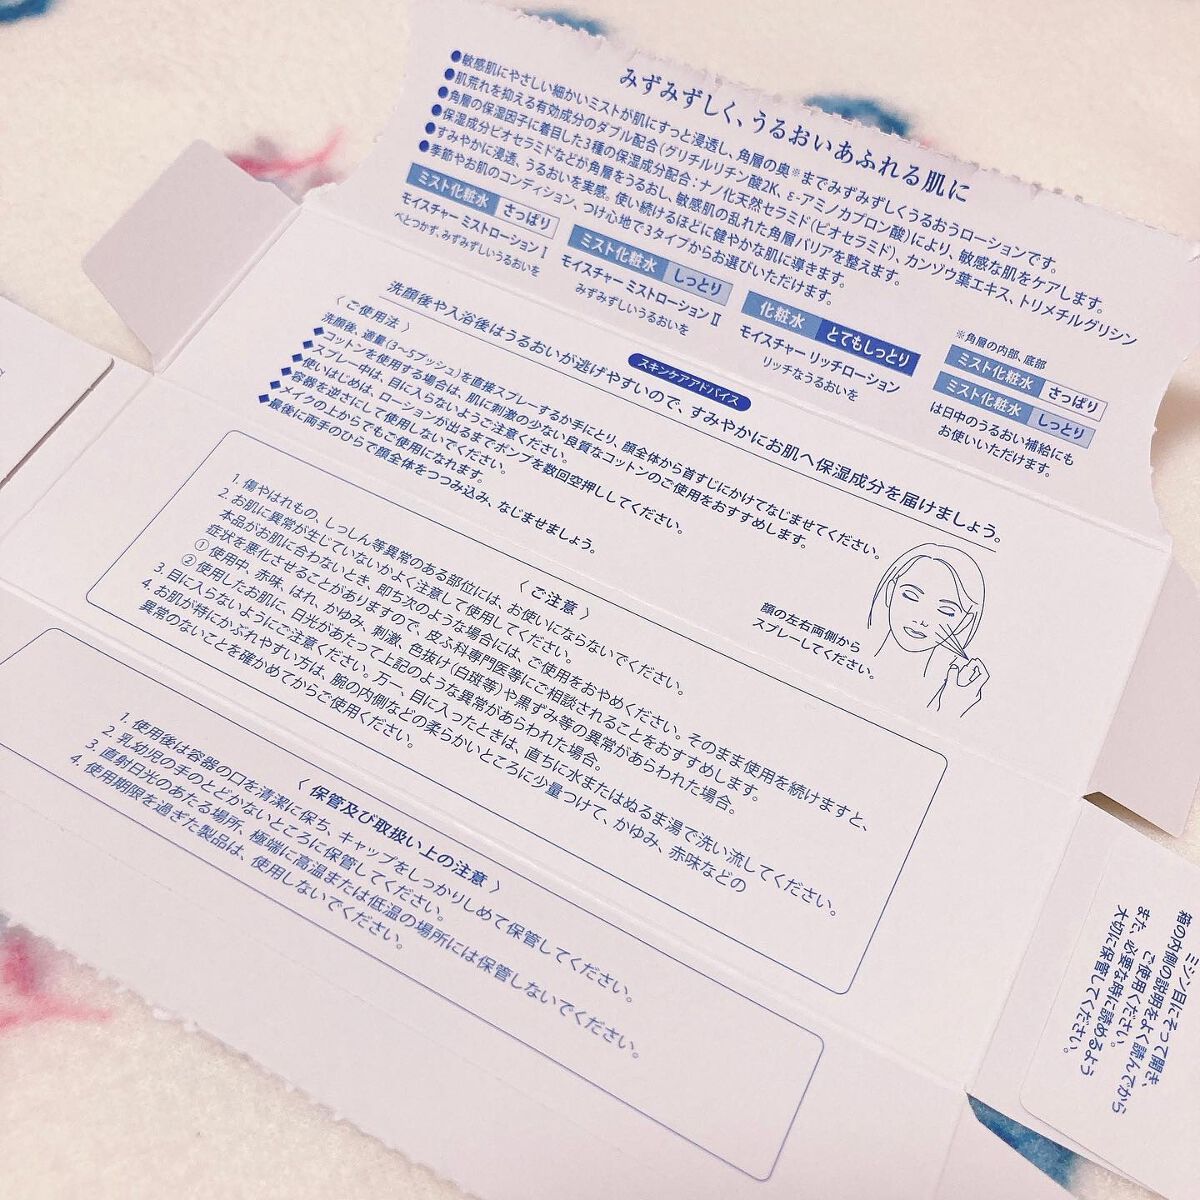 みずみずしく、うるおいあふれる肌に
●敏感肌にやさしい細かいミストが肌にすっと浸透し、角層の奥※までみずみずしくうるおうローションです。
●肌荒れを抑える有効成分のダブル配合(グリチルリチン酸2K、ε-アミノカプロン酸)により、敏感な肌をケアします。
●角層の保湿因子に着目した3種の保湿成分配合:ナノ化天然セラミド(ビオセラミド)、カンゾウ葉エキス、トリメチルグリシン
●保湿成分ビオセラミドなどが角層をうるおし、敏感肌の乱れた角層バリアを整えます。
●すみやかに浸透、うるおいを実感。使い続けるほどに健やかな肌に導きます。
●季節やお肌のコンディション、つけ心地で3タイプからお選びいただけます。
ミスト化粧水 さっぱり
モイスチャー ミストローション I
べとつかず、みずみずしいうるおいを
ミスト化粧水 しっとり
モイスチャー ミストローション II
みずみずしいうるおいを
化粧水 とてもしっとり
モイスチャー リッチローション
リッチなうるおいを
※角層の内部、底部
ミスト化粧水 さっぱり
ミスト化粧水 しっとり
は日中のうるおい補給にも
お使いいただけます。
スキンケアアドバイス
洗顔後や入浴後はうるおいが逃げやすいので、すみやかにお肌へ保湿成分を届けましょう。
〈ご使用法〉
洗顔後、適量(3〜5プッシュ)を直接スプレーするか手にとり、顔全体から首すじにかけてなじませてください。
◆コットンを使用する場合は、肌に刺激の少ない良質なコットンのご使用をおすすめします。
◆スプレー中は、目に入らないようご注意ください。
◆使いはじめは、ローションが出るまでポンプを数回空押ししてください。
◆容器を逆さにして使用しないでください。
◆メイクの上からでもご使用になれます。
◆最後に両手のひらで顔全体をつつみ込み、なじませましょう。
顔の左右両側から
スプレーしてください。
〈ご注意〉
1. 傷やはれもの、しっしん等異常のある部位には、お使いにならないでください。
2. お肌に異常が生じていないかよく注意して使用してください。
本品がお肌に合わないとき、即ち次のような場合には、ご使用をおやめください。そのまま使用を続けますと、
症状を悪化させることがありますので、皮ふ科専門医等にご相談されることをおすすめします。
① 使用中、赤味、はれ、かゆみ、刺激、色抜け(白斑等)や黒ずみ等の異常があらわれた場合。
② 使用したお肌に、日光があたって上記のような異常があらわれた場合。
3. 目に入らないようにご注意ください。万一、目に入ったときは、直ちに水またはぬるま湯で洗い流してください。
4. お肌が特にかぶれやすい方は、腕の内側などの柔らかいところに少量つけて、かゆみ、赤味などの
異常のないことを確かめてからご使用ください。
〈保管及び取扱い上の注意〉
1. 使用後は容器の口を清潔に保ち、キャップをしっかりしめて保管してください。
2. 乳幼児の手のとどかないところに保管してください。
3. 直射日光のあたる場所、極端に高温または低温の場所には保管しないでください。
4. 使用期限を過ぎた製品は、使用しないでください。
ミシン目にそって開き、
箱の内側の説明をよく読んでから
ご使用ください。
また、必要な時に読めるよう
大切に保管してください。